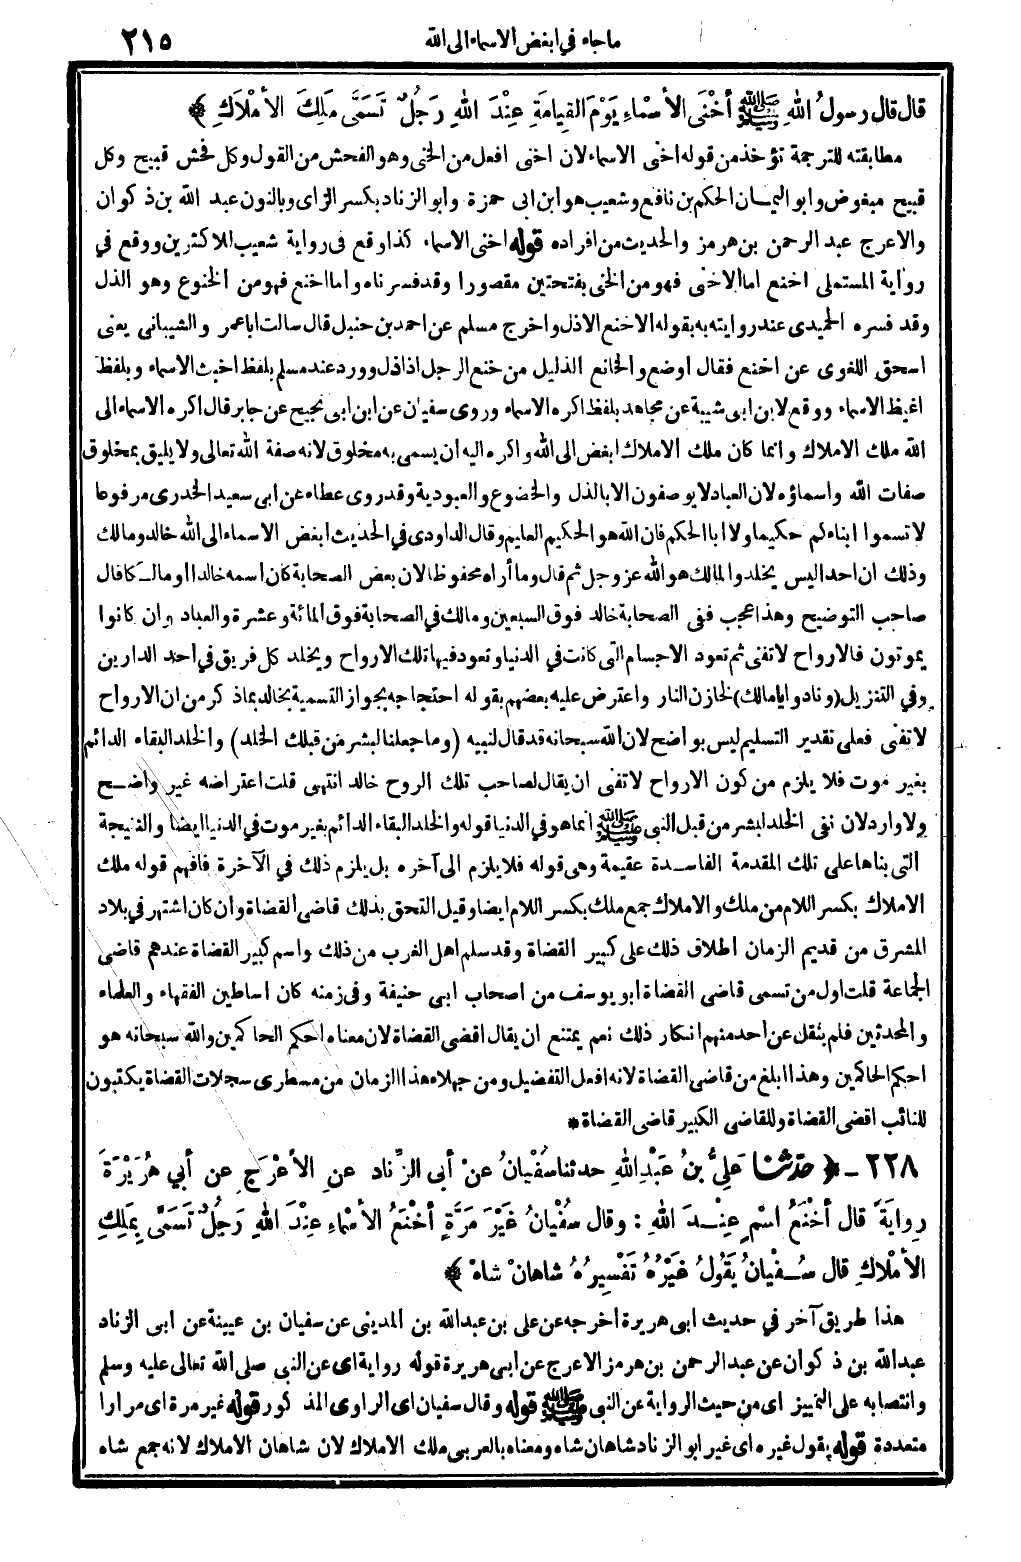 ماجاء في ابغض الاسماء الى الله ٢١٥
قال قال رسولُ اللهِ ﷺ أَخْنَى الأَسْمَاءِ يَوْمَ القِيامَةِ عِنْدَ اللهِ رَجُلٌ تَسَمَّى مَلِكَ الأَمْلاَكِ ﴾
مطابقته للترجمة تؤخذ من قوله اخنى الاسماء لان اخنى افعل من الخنى وهو الفحش من القول وكل فحش قبيح وكل
قبيح مبغوض وابو اليمـان الحكم بن نافع وشعيب هو ابن ابى حمزة وابو الزناد بكسر الزاى وبالنون عبد الله بن ذكوان
والاعرج عبد الرحمن بن هرمز والحديث من افراده قوله اخنى الاسماء كذا وقع فى رواية شعيب للاكثرين ووقع في
رواية المستملى اخنع اما الاخنى فهو من الخنى بفتحتين مقصورا وقد فسرناه واما اخنع فهو من الخنوع وهو الذل
وقد فسره الحميدى عند روايته به بقوله الاخنع الاذل واخرج مسلم عن احمد بن حنبل قال سالت اباعمر والشيبانى يعنى
اسحق اللغوى عن اخنع فقال اوضع والخانع الذليل من خنع الرجل اذا ذل وورد عند مسلم بلفظ اخبث الاسماء وبلفظ
اغيظ الاسماء ووقع لابن ابى شيبة عن مجاهد بلفظ اكره الاسماء وروى سفيان عن ابن ابى نجيح عن جابر قال اكره الاسماء الى
الله ملك الاملاك وانما كان ملك الاملاك ابغض الى الله واكره اليه ان يسمى به مخلوق لانه صفة الله تعالى ولا يليق بمخلوق
صفات الله واسماؤه لان العباد لا يوصفون الا بالذل والخضوع والعبودية وقد روى عطاء عن ابى سعيد الخدرى مرفوعا
لا تسموا ابناءكم حكيما ولا ابا الحكم فان الله هو الحكيم العليم وقال الداودى في الحديث ابغض الاسماء الى الله خالد ومالك
وذلك ان احدا ليس يخلد والمالك هو الله عز وجل ثم قال وما أراه محفوظا لان بعض الصحابة كان اسمه خالدا او مالـكا قال
صاحب التوضيح وهذا عجب ففى الصحابة خالد فوق السبعين ومالك في الصحابة فوق المائة وعشرة والعباد وان كانوا
يموتون فالارواح لا تفنى ثم تعود الاجسام التى كانت في الدنيا وتعود فيها تلك الارواح ويخلد كل فريق في احد الدارين
وفي التنزيل (ونادوا يا مالك) لخازن النار واعترض عليه بعضهم بقوله احتجاجه بجواز التسمية بخالد بما ذكر من ان الارواح
لا تفنى فعلى تقدير التسليم ليس بواضح لان الله سبحانه قد قال لنبيه (وما جعلنا لبشر من قبلك الخلد) والخلد البقاء الدائم
بغير موت فلا يلزم من كون الارواح لا تفنى ان يقال لصاحب تلك الروح خالد انتهى قلت اعتراضه غير واضـح
ولا وارد لان نفى الخلد لبشر من قبل النبى ﷺ انما هو في الدنيا قوله والخلد البقاء الدائم بغير موت في الدنيا ايضا والنتيجة
التى بناها على تلك المقدمة الفاسـدة عقيمة وهى قوله فلا يلزم الى آخره بل يلزم ذلك في الآخرة فافهم قوله ملك
الاملاك بكسر اللام من ملك والاملاك جمع ملك بكسر اللام ايضا وقيل التحق بذلك قاضى القضاة وان كان اشتهر في بلاد
المشرق من قديم الزمان اطلاق ذلك على كبير القضاة وقد سلم اهل الغرب من ذلك واسم كبير القضاة عندهم قاضى
الجماعة قلت اول من تسمى قاضى القضاة ابو يوسف من اصحاب ابى حنيفة وفى زمنه كان اساطين الفقهاء والعلماء
والمحدثين فلم ينقل عن احد منهم انكار ذلك نعم يمتنع ان يقال اقضى القضاة لان معناه احكم الحاكمين والله سبحانه هو
احكم الحاكمين وهذا ابلغ من قاضى القضاة لانه افعل التفضيل ومن جهلاء هذا الزمان من مسطرى سجلات القضاة يكتبون
للنائب اقضى القضاة وللقاضى الكبير قاضى القضاة *
٢٢٨ ـ ﴿ حدّثنا عَلِيُّ بنُ عَبْدِ اللهِ حدثنا سُفْيانُ عنْ أبى الزِّناد عنِ الأَعْرَجِ عن أبي هُرَيْرَةَ
رِوايَةً قال أَخْنَعُ اسْمٍ عِنْـدَ اللهِ : وقال سُفْيانُ غَيْرَ مَرَّةٍ أَخْنَعُ الأَسْماءِ عِنْدَ اللهِ رَجُلٌ تَسَمَّى بِمَلِكِ
الأَمْلاَكِ قال سُـفْيانُ يَقُولُ غَيْرُهُ تَفْسِيرُهُ شاهانْ شاهْ ﴾
هذا طريق آخر في حديث ابى هريرة اخرجه عن على بن عبدالله بن المدينى عن سفيان بن عيينة عن ابى الزناد
عبدالله بن ذكوان عن عبدالرحمن بن هرمز الاعرج عن ابى هريرة قوله رواية اى عن النبى صلى الله تعالى عليه وسلم
وانتصابه على التمييز اى من حيث الرواية عن النبى ﷺ قوله وقال سفيان اى الراوى المذكور قوله غير مرة اى مرارا
متعددة قوله يقول غيره اى غير ابو الزناد شاهان شاه ومعناه بالعربى ملك الاملاك لان شاهان الاملاك لانه جمع شاه